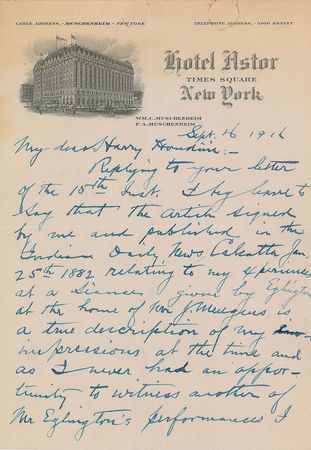 CABLE ADDRESS,-MUSCHENHEIM-NEW YORK
TELEPHONE ADDRESS,-2100 BRYANT
Hotel Astor
TIMES SQUARE
New York
WM.C.MUSCHENHEIM
F.A.MUSCHENHEIM
Sept. 16 1916
My dear Harry Houdini:-
Replying to your letter
of the 15th Inst. I beg leave to
say that the article signed
by me and published in the
Indian Daily News Calcutta Jan
25th 1882 relating to my experiences
at a Seance given by Eglington
at the home of Mr J. Meugens is
a true description of my
impressions at the time and
as I never had an oppor-
tunity to witness another of
Mr Eglington's performances I